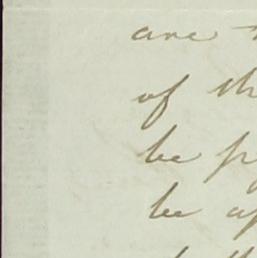 are
of th
be p
be ap